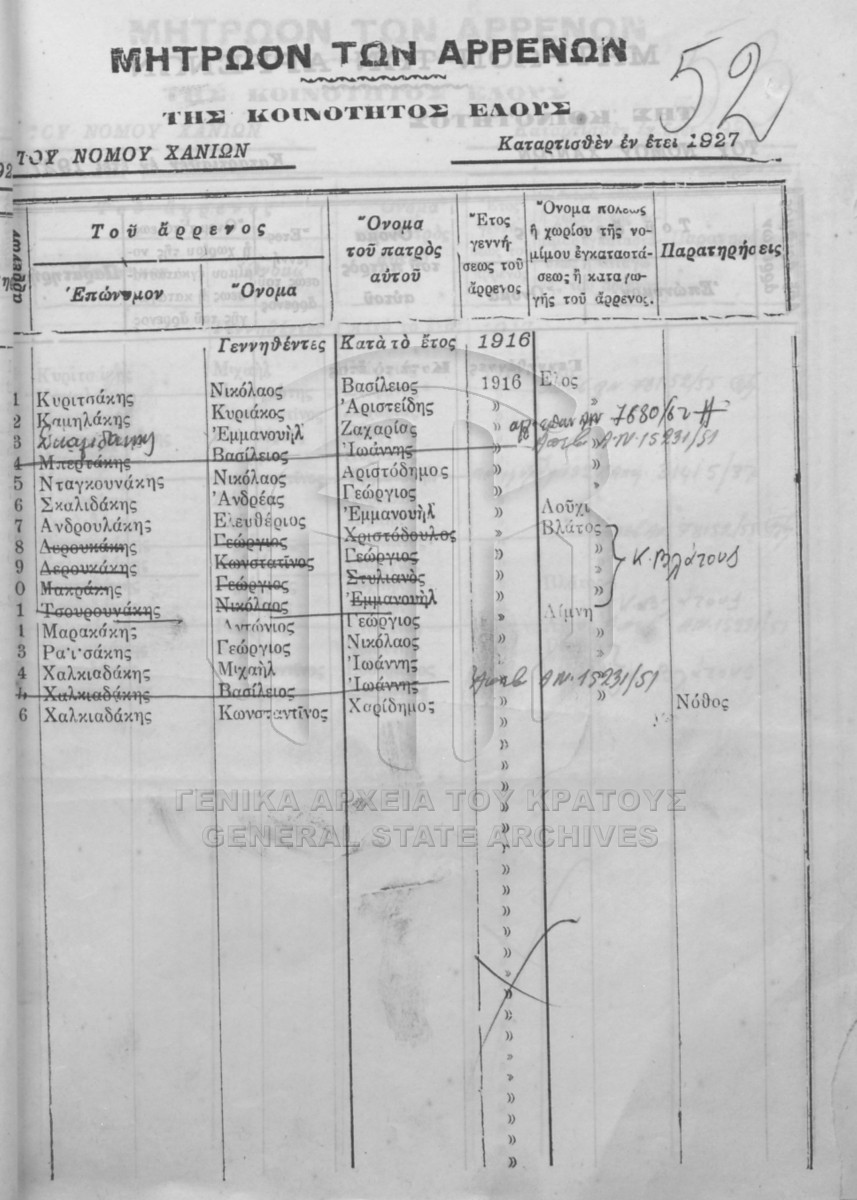 ΜΗΤΡΩΟΝ ΤΩΝ ΑΡΡΕΝΩΝ
52
ΤΗΣ ΚΟΙΝΟΤΗΤΟΣ ΕΛΟΥΣ
ΤΟΥ ΝΟΜΟΥ ΧΑΝΙΩΝ
Καταρτισθὲν ἐν ἔτει 1927
Τοῦ ἄρρενος
Ὄνομα τοῦ πατρὸς αὐτοῦ
Ἔτος γεννήσεως τοῦ ἄρρενος
Ὄνομα πόλεως ἢ χωρίου τῆς νομίμου ἐγκαταστάσεως ἢ καταγωγῆς τοῦ ἄρρενος.
Παρατηρήσεις
Ἐπώνυμον Ὄνομα
Γεννηθέντες Κατὰ τὸ ἔτος 1916
1 Κυριτσάκης Νικόλαος Βασίλειος 1916 Ἔλος
2 Καμηλάκης Κυριάκος Ἀριστείδης » » 7680/62
3 Ἐμμανουὴλ Ζαχαρίας » Α.Ν. 15231/51
4 Μπερτάκης Βασίλειος Ἰωάννης »
5 Νταγκουνάκης Νικόλαος Ἀριστόδημος » »
6 Σκαλιδάκης Ἀνδρέας Γεώργιος » »
7 Ἀνδρουλάκης Ἐλευθέριος Ἐμμανουὴλ » Λοῦχι
8 Δερουκάκης Γεώργιος Χριστόδουλος » Βλάτος
9 Δερουκάκης Κωνστατῖνος Γεώργιος » » Κ. Βλάτους
0 Μακράκης Γεώργιος Στυλιανὸς » »
1 Τσουρουνάκης Νικόλαος Ἐμμανουὴλ » »
1 Μαρακάκης Ἀντώνιος Γεώργιος » Λίμνη
3 Ραϊσάκης Γεώργιος Νικόλαος » »
4 Χαλκιαδάκης Μιχαὴλ Ἰωάννης » »
Χαλκιαδάκης Βασίλειος Ἰωάννης » » Α.Ν. 15231/51
6 Χαλκιαδάκης Κωνσταντῖνος Χαρίδημος » » Νόθος
ΓΕΝΙΚΑ ΑΡΧΕΙΑ ΤΟΥ ΚΡΑΤΟΥΣ
GENERAL STATE ARCHIVES